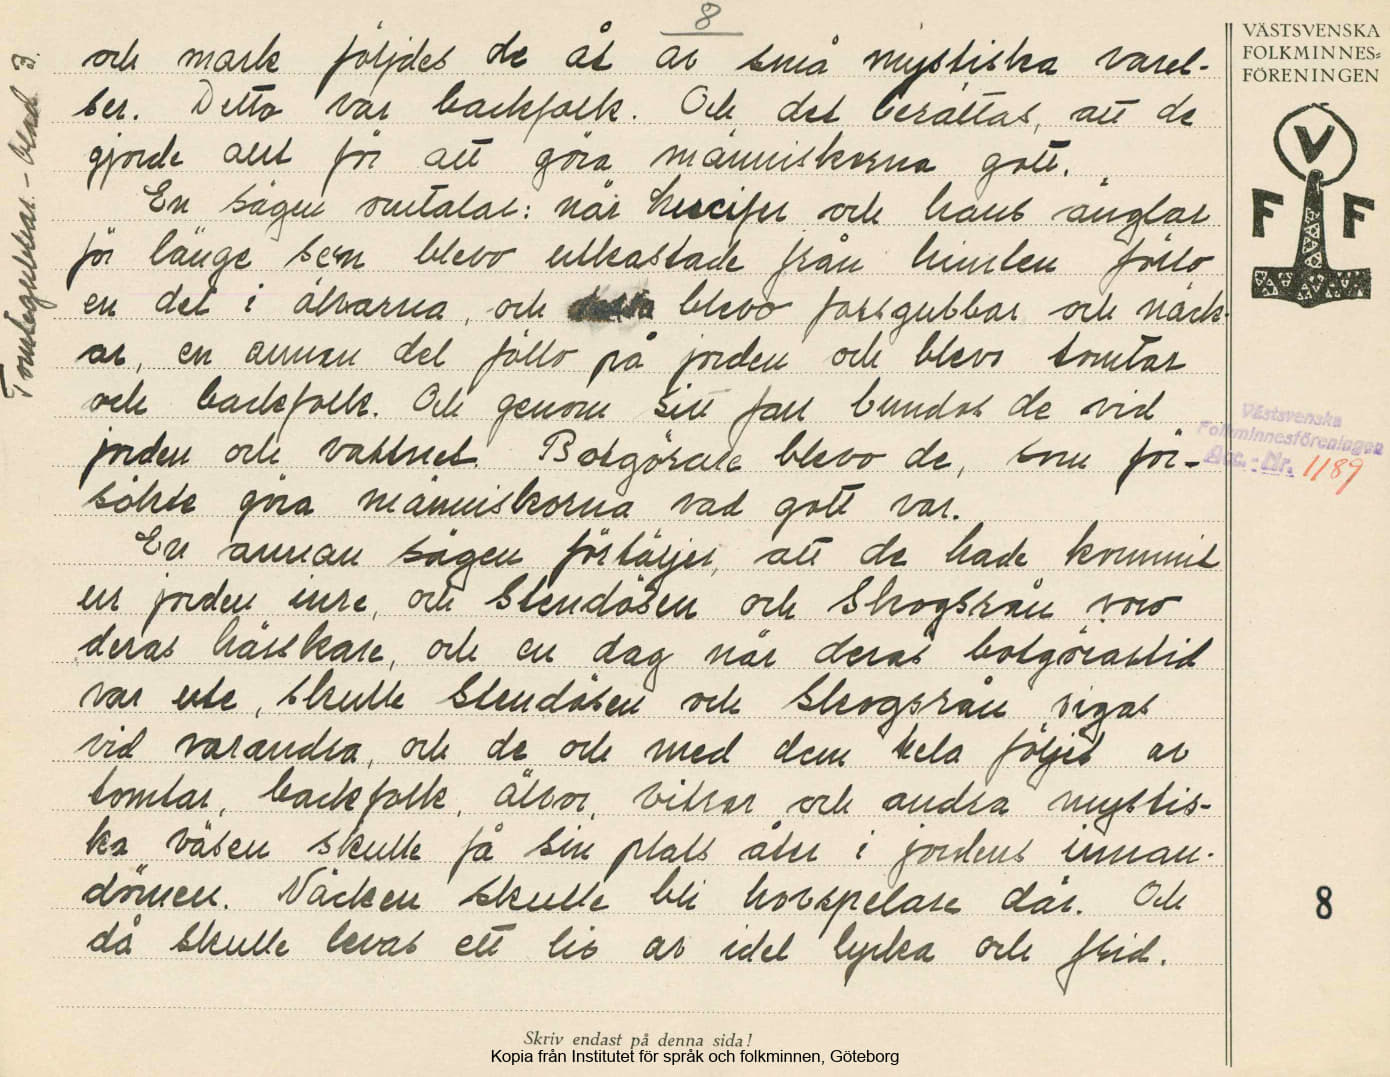 8
och mark följdes de åt av små mystiska varel-
ser. Detta var backfolk. Och det berättas, att de
gjorde allt för att göra människorna gott.
En sägen omtalar: när Lucifer och hans änglar
för länge sen blevo utkastade från himlen föllo
en del i älvarna, och blevo forsgubbar och näck-
ar, en annan del föllo på jorden och blevo tomtar
och backfolk. Och genom sitt fall bundos de vid
jorden och vattnet. Botgörare blevo de, som för-
sökte göra människorna vad gott var.
En annan sägen förtäljer, att de hade kommit
ur jorden inre, och Stendösen och Skogsrån voro
deras härskare, och en dag när deras botgörastid
var ute, skulle Stendösen och Skogsrån vigas
vid varandra, och de och med dem hela följet av
tomtar, backfolk, älvor, vitror och andra mystis-
ka väsen skulle få sin plats åter i jordens innan-
dömen. Näcken skulle bli hovspelare där. Och
då skulle levas ett liv av idel lycka och frid.
Skriv endast på denna sida!
Kopia från Institutet för språk och folkminnen, Göteborg
VÄSTSVENSKA
FOLKMINNES-
FÖRENINGEN
V
F F
Västsvenska
Folkminnesföreningen
Acc.-Nr. 1189
8